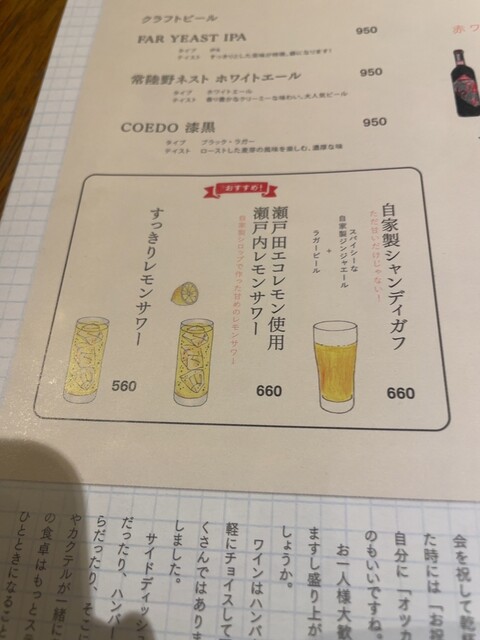 クラフトビール
FAR YEAST IPA 950
タイプ IPA
テイスト すっきりとした
常陸野ネスト ホワイトエール 950
タイプ ホワイトエール
テイスト 香り豊かなクリーミーな味わい。大人気ビール
COEDO 漆黒 950
タイプ ブラック・ラガー
テイスト ローストした麦芽の風味を楽しむ、濃厚な味
赤ワ
おすすめ!
自家製シャンディガフ
ただ甘いだけじゃない!
スパイシーな
自家製ジンジャエール
+
ラガービール
660
瀬戸田エコレモン使用
瀬戸内レモンサワー
自家製シロップで作った甘めのレモンサワー
660
すっきりレモンサワー
560
会を祝して乾杯
た時には「お祝
自分に「オッ
のもいいですね
お一人様大歓
ますし盛り上が
しょうか。
ワインはハンバ
軽にチョイスして
くさんではありま
しました。
サイドディッシ
だったり、ハンバー
らだったり、そこに
やカクテルが一緒に
の食卓はもっとス
ひとときになること